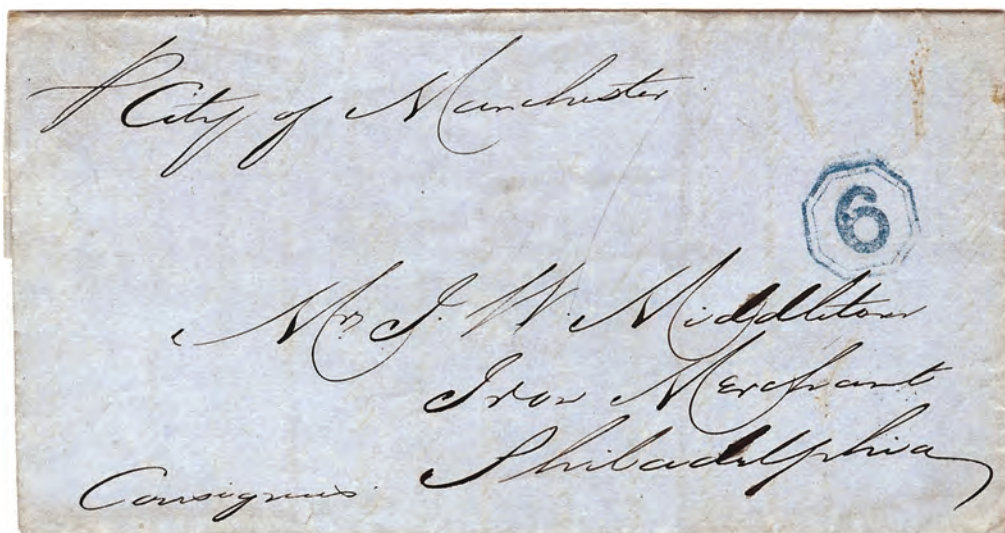 P City of Manchester
6
Mr. J. W. Middleton
Iron Merchant
Philadelphia
Consignees